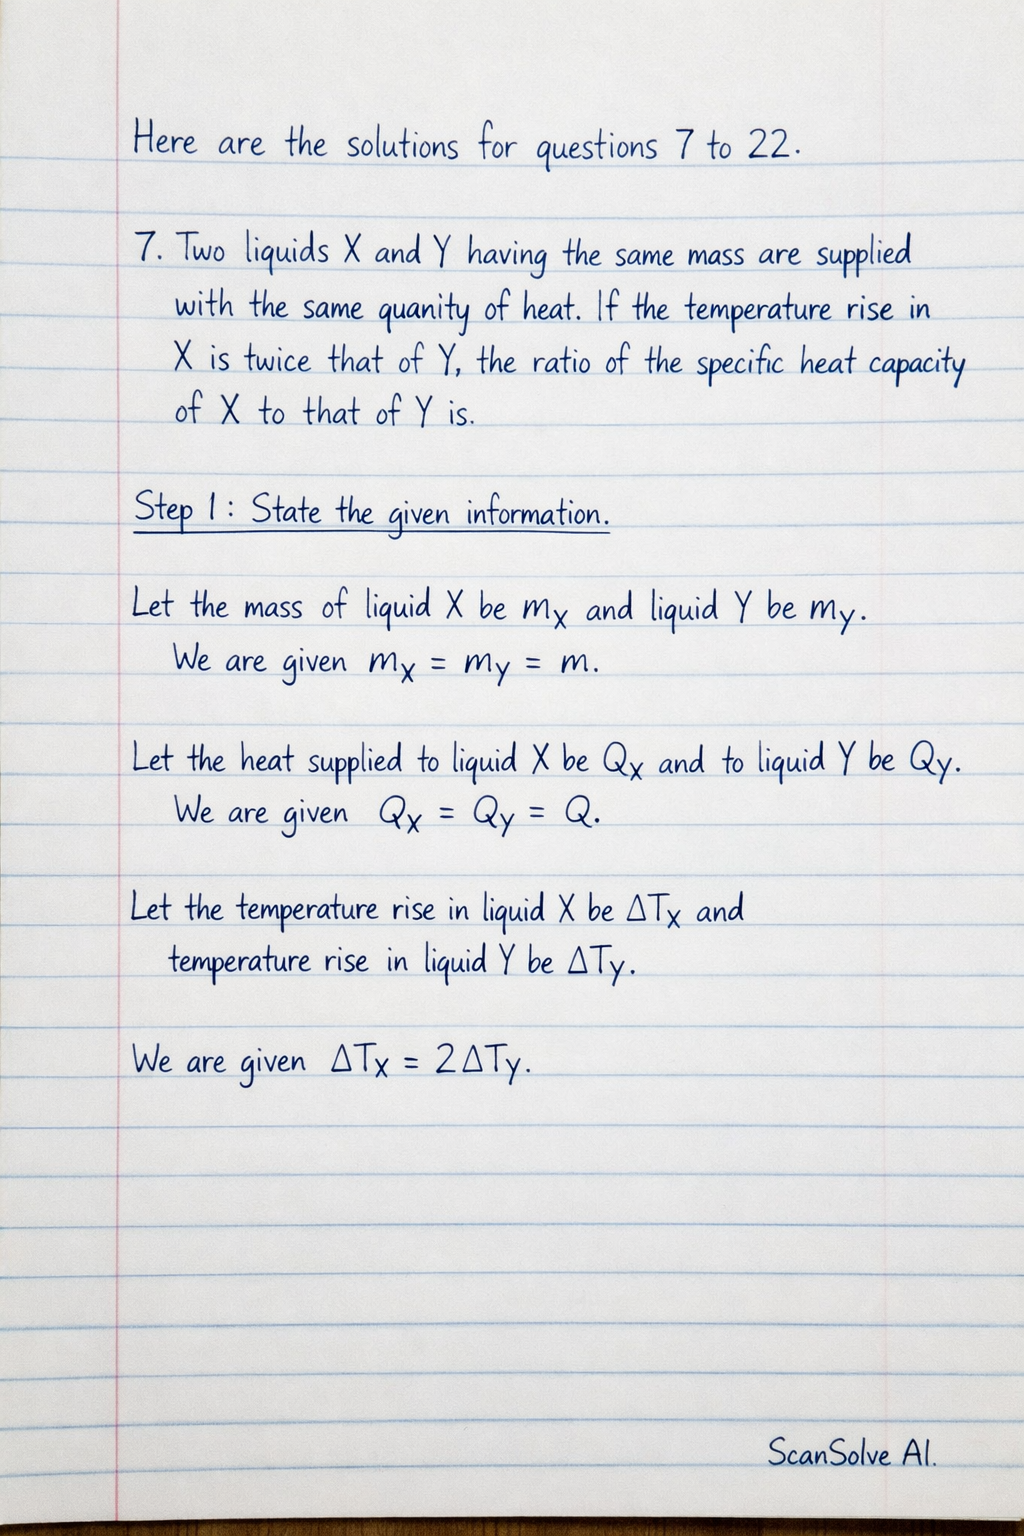 Here are the solutions for questions 7 to 22.
7. Two liquids X and Y having the same mass are supplied
with the same quanity of heat. If the temperature rise in
X is twice that of Y, the ratio of the specific heat capacity
of X to that of Y is.
Step 1: State the given information.
Let the mass of liquid X be mₓ and liquid Y be mᵧ.
We are given mₓ = mᵧ = m.
Let the heat supplied to liquid X be Qₓ and to liquid Y be Qᵧ.
We are given Qₓ = Qᵧ = Q.
Let the temperature rise in liquid X be ΔTₓ and
temperature rise in liquid Y be ΔTᵧ.
We are given ΔTₓ = 2ΔTᵧ.
ScanSolve AI.